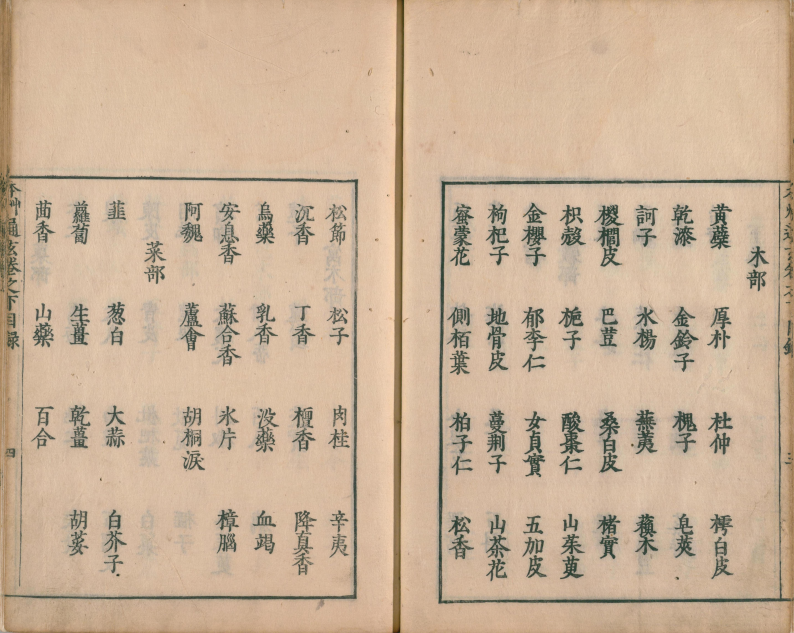 木部
黃蘗 厚朴 杜仲 樗白皮
乾漆 金鈴子 槐子 皂莢
訶子 水楊 蕪荑 蘓木
椶櫚皮 巴荳 桑白皮 楮實
枳殼 栀子 酸棗仁 山茱萸
金櫻子 郁李仁 女貞實 五加皮
枸杞子 地骨皮 蔓荆子 山茶花
蜜蒙花 側栢葉 柏子仁 松香
松節 松子 肉桂 辛夷
沉香 丁香 檀香 降真香
烏藥 乳香 没藥 血竭
安息香 蘇合香 氷片 樟腦
阿魏 蘆會 胡桐淚
菜部
韭 葱白 大蒜 白芥子
蘿蔔 生薑 乾薑 胡荽
茴香 山藥 百合
本艸通玄卷之下目錄 四